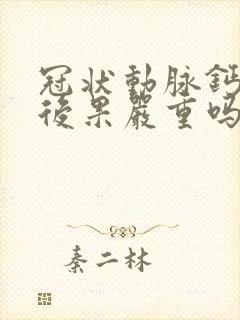 冠状動脉鈣
後果嚴重吗
秦二林